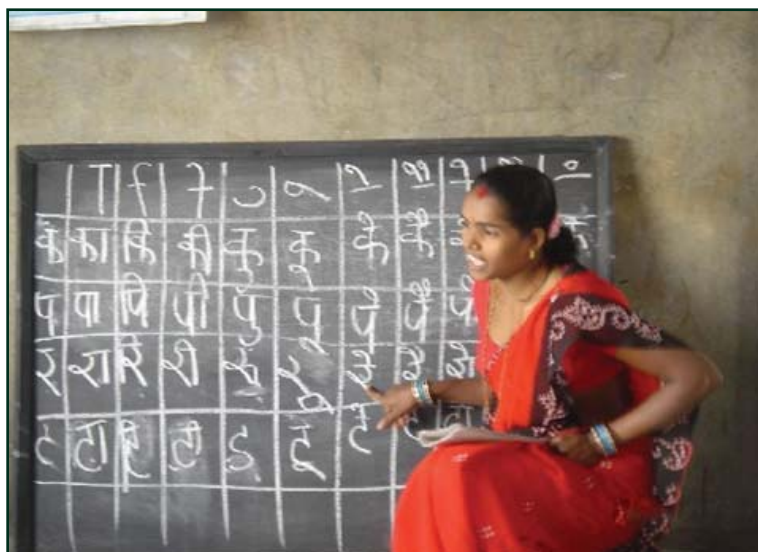 ा ि ी ु ू े ै ो
क का कि की कु कू के कै
प पा पि पी पु पू पे पै पो
र रा रि री रु रू रे रै
ट टा टि टी टु टू टे